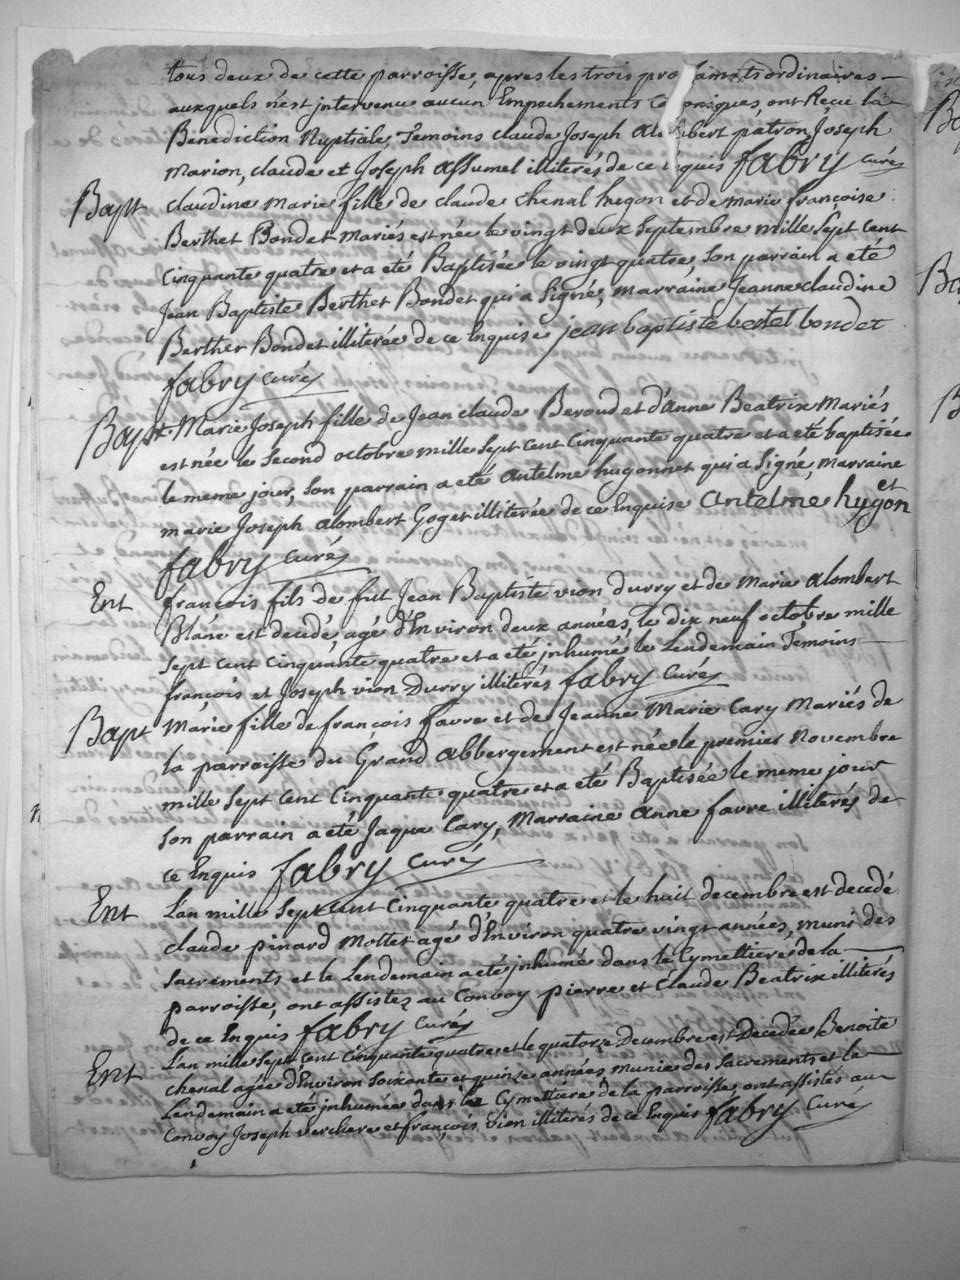 tous deux de cette parroisse, apres les trois pro lamats ordinaires
auxquels n'est jntervenu aucun Empechements Ca oniques, ont Recu la
Benediction Nuptiale, Temoins claude Joseph Alo bert patron, Joseph
Marion, claude et Joseph Assumel illiterés de ce quis fabry curé
Bapt claudine Marie fille de claude chenal hugon et de marie françoise
Berthet Bondet Mariés est née le vingt deux Septembre mille Sept cent
Cinquante quatre et a été Baptisée le vingt quatre, Son parrain a été
Jean Baptiste Berthet Bondet qui a Signé, marraine Jeanne claudine
Berthet Bondet illiterée de ce Enquise jean baptiste bertet bondet
fabry curé
Bapt Marie Joseph fille de Jean claude Beroud et d'Anne Beatrix Mariés
est née le second octobre mille sept cent Cinquante quatre et a été baptisée
le meme jour, Son parrain a été Antelme hugonnet qui a Signé, Marraine
marie Joseph Alombert Goget illiterée de ce Enquise Antelme hygon et
fabry Curé
Ent françois fils de fut Jean Baptiste vion Durry et de Marie Alombert
Blanc est decedé, agé d'Environ deux années, le dix neuf octobre mille
Sept cent Cinquante quatre et a été jnhumé le Lendemain Témoins
françois et Joseph vion Durry illiterés fabry Curé
Bapt Marie fille de françois favre et de Jeanne Marie Cary Mariés de
la parroisse du Grand Abbergement est née le premier Novembre
mille Sept Cent Cinquante quatre et a été Baptisée le meme jour
Son parrain a été Jaque Cary, Marraine Anne favre illiterés de
ce Enquis fabry Curé
Ent L'an mille Sept Cent Cinquante quatre et le huit decembre est decedé
claude pinard Mottet agé d'Environ quatre vingt années, muni des
Sacrements et le Lendemain a été jnhumé dans le Cymettiere de la
parroisse, ont assistez au Convoy pierre et Claude Beatrix illiterés
de ce Enquis fabry Curé
Ent L'an mille Sept Cent Cinquante quatre et le quatorze Decembre est Decedée Benoite
chenal agée d'Environ Soixante et quinze années munie des Sacrements et le
Lendemain a été jnhumée dans le Cymettiere de la parroisse ont assistés au
Convoy Joseph Verchere et françois vion illiterés de ce Enquis fabry Curé